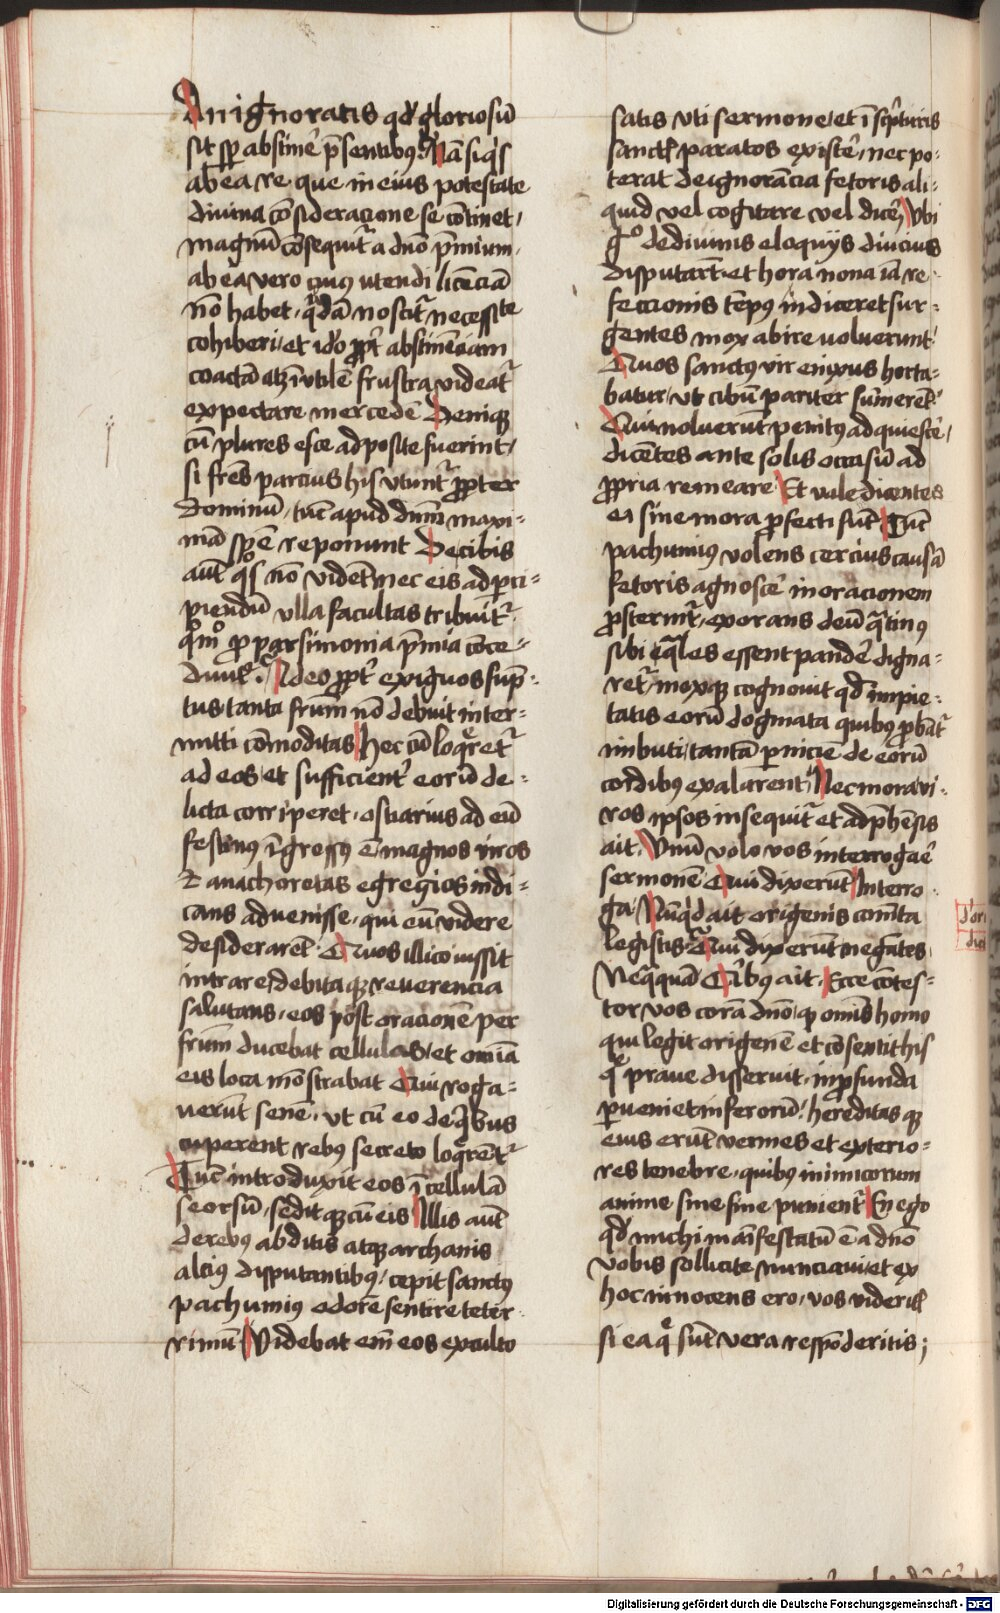 An ignoratis qd̛ gloriosū
sit sꝑ abstinē p̄sentibus Nā si qⁱs
ab ea re que in eius potestate
diuina cōsideracione se cōtinet
magnū cōsequit᷑ a dnō p̄mium
ab ea vero cuius utendi licēciā
nō habet
cohiberi et ido ꝓpt̛ abstinēciam
coactā frustra videat᷑
expectare mercedē Deniqꝫ
cū plures esce adposite fuerint
si frēs parcius his vtunt᷑ ꝓpter
dominū tūc apud dnm̄ maxi-
mā spē reponunt De cibis
aūt qͦs nō vidēt nec eis ad ꝑci-
piendū ulla facultas tribuit᷑
qͦmͦ ꝓ parsimonia p̄mia cōce-
dunt᷑ Ideo ꝓpt̛ exiguos sūp-
tus tanta frūm nō debuit inter-
mitti cōmoditas Hec cū loqͤret᷑
ad eos et sufficient̛ eorū de-
licta corriperet ostiarius ad eū
festinꝰ īgressꝰ ē magnos viros
et anachoretas egregios indi-
cans aduenisse qui eū videre
desiderarēt Quos illico iussit
intrare debita qꝫ reuerencia
salutans eos post oracionē per
frūm ducebat cellulas et omīa
eis loca mōstrabat Qui roga-
uerūt senē vt cū eo de qⁱbus
cuperent rebꝰ secreto loqͤrēt᷑
Tūc introduxit eos ī cellulā
seorsū sedit qꝫ cū eis Illis aūt
de rebꝰ abditis atqꝫ archanis
alciꝰ disputantibꝰ cepit sanctꝰ
pachumiꝰ odorē sentire teter-
rimū Videbat em̄ eos exculto
satis vti sermone et ī scp̛turis
sanct᷑ paratos existē nec po-
terat de ignorācia fetoris ali-
quid vel cogitare vel dicē Vbi
gͦ de diuinis eloquijs diucius
disputarēt et hora nona iā re-
feccionis tēpꝰ indiceret sur-
gentes mox abire uoluerunt
Quos sanctꝰ vir enixius horta-
batur vt cibū pariter sūmerēt
Qui noluerūt penitꝰ adquiescē
dicētes ante solis occasū ad
ꝓpria remeare Et vale dicentes
ei sine mora ꝓfecti sūt Tūc
pachumiꝰ volens cercius causā
fetoris agnoscē in oracionem
ꝓsternit᷑ exorans deū qᵃtinꝰ
sibi qᵃles essent pandē digna-
ret᷑ moxqꝫ cognouit qd̛ impie-
tatis eorū dogmata quibꝰ ꝓbāt᷑
imbuti tantā ꝑniciē de eorū
cordibꝰ exalarent Nec mora vi-
ros ipsos insequit᷑ et adp̄hēsis
ait Vnū volo vos interrogaē
sermonē Qui dixerūt Interro
ga Nūqⁱd ait origenis cōm̄ta
legistis Qui dixerūt negātes
Neqᵃquā Qⁱbꝰ ait Ecce cōtes-
tor vos corā dnō qꝫ omīs homo
qui legit origenē et cōsentit his
qᷓ praue disseruit in ꝓfunda
ꝑueniet inferorū hereditas qꝫ
eius erūt vermes et exterio-
res tenebre quibus inimicorum
anime sine fine punient᷑ En ego
qd̛ michi maīfestatū ē a dnō
vobis sollicite nunciaui et ex
hoc innocens ero vos videritis
si ea qᷓ sūt vera respōderitis;
Digitalisierung gefördert durch die Deutsche Forschungsgemeinschaft - DFG